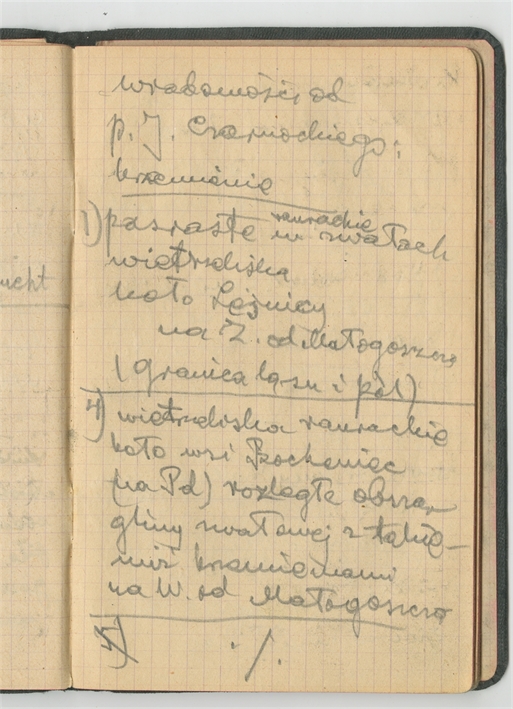 wiadomości od
p. J. Czarnockiego:
krzemienie
1) pasiaste w raurackie zwałach
wietrzeliska
koło Leśnicy
na Z. od Małogoszcza
(granica lasu i pól)
4) wietrzeliska raurackie
koło wsi Bocheniec
(na Pd) rozległe obszary
gliny zwałowej z takie-
miż krzemieniami
na W. od Małogoszcza
5)
./.
ucht